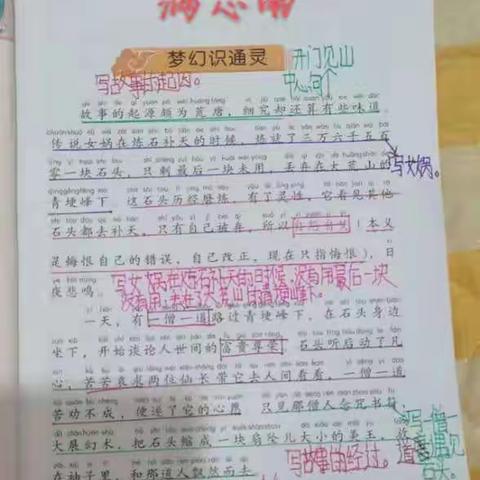 梦幻识通灵
开门见山
中心句
写故事的起因。
故事的起源颇为荒唐，细究却还算有些味道。
传说女娲在炼石补天的时候，炼就了三万六千五百
零一块石头，只剩最后一块未用，丢弃在大荒山的
写女娲。
青埂峰下。这石头历经磨炼，有了灵性，它看见其他
石头都去补天，只有自己被弃，所以自怨自艾（本义
是悔恨自己的错误，自己改正，现在只指悔恨），日
夜悲鸣。
写女娲在炼石补天的时候，没有用最后一块
一天，有一僧一道路过青埂峰下，在石头身边
坐下，开始谈论人世间的富贵尊荣。石头听后动了凡
心，苦苦哀求两位仙长带它去人间看看，一僧一道
苦劝不成，便遂了它的心愿。只见那僧人念咒书符，
大展幻术，把石头缩成一块扇坠儿大小的美玉，放
在袖子里，和那道人飘然而去
写一僧一
道遇见
石头。
写故事的经过。